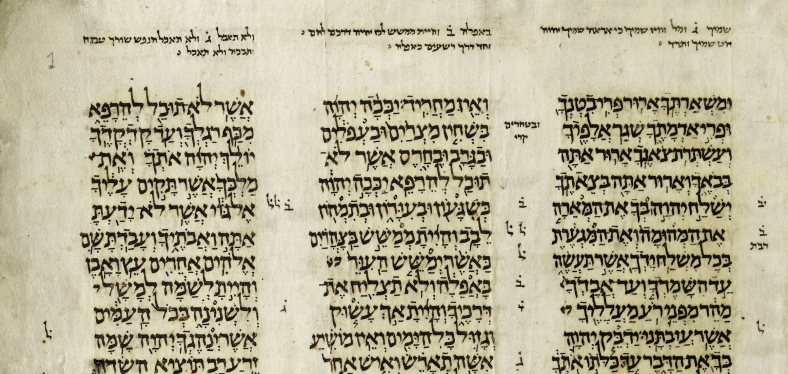 שמיך ג והיו שמיך כי אראה שמיך
שמיך ותרד
ומשארתך ארור פרי בטנך
ופרי אדמתך שגר אלפיך
ועשתרת צאנך ארור אתה
בבאך וארור אתה בצאתך
ישלח יהוה בך את המארה
את המהומה ואת המגערת
בכל משלח ידך אשר תעשה
עד השמדך ועד אבדך
מהר מפני רע מעלליך
אשר עזבתני ידבק יהוה
בך את הדבר עד כלתו אתך
באפלה ב והיית ממשש יהיה דרכם להם
דרך רשעים כאפלה
ואין מחריד יככה יהוה
בשחין מצרים ובעפלים
ובגרב ובחרס אשר לא
תוכל להרפא יככה יהוה
בשגעון ובעורון ובתמהון
לבב והיית ממשש בצהרים
כאשר ימשש העור
באפלה ולא תצליח את
דרכיך והיית אך עשוק
וגזול כל הימים ואין מושיע
אשה תארש ואיש אחר
ובטחרים
קרי
ולא תאכל ג ולא תאכל הנפש שורך טבוח
ולא תאכל
אשר לא תוכל להרפא
מכף רגלך ועד קדקדך
יולך יהוה אתך ואת
מלכך אשר תקים עליך
אל גוי אשר לא ידעת
אתה ואבתיך ועבדת שם
אלהים אחרים עץ ואבן
והיית לשמה למשל
ולשנינה בכל העמים
אשר ינהגך יהוה שמה
זרע רב תוציא השדה
1